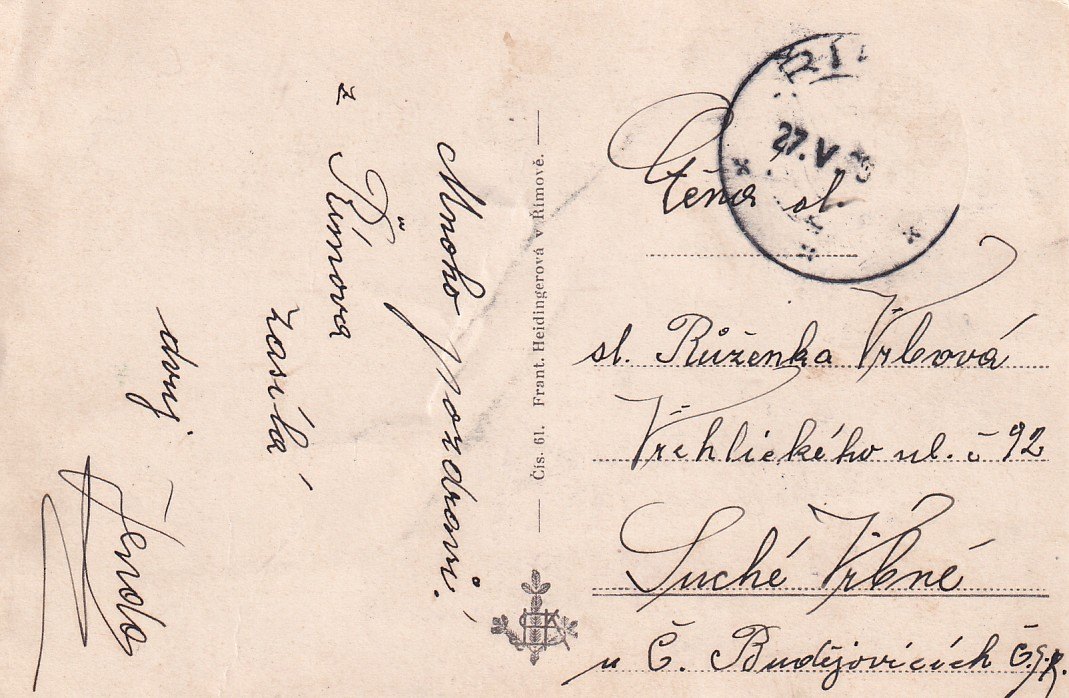 Mnoho pozdravů.
z Římova
zasílá
dvuj
Jenda
Čís. 61. Frant. Heidingerová v Římově.
27.V.
Ctěná sl.
sl. Růženka Vrbová
Vrchlického ul. č 92
Suché Vrbné
u Č. Budějovicích Č.S.R.